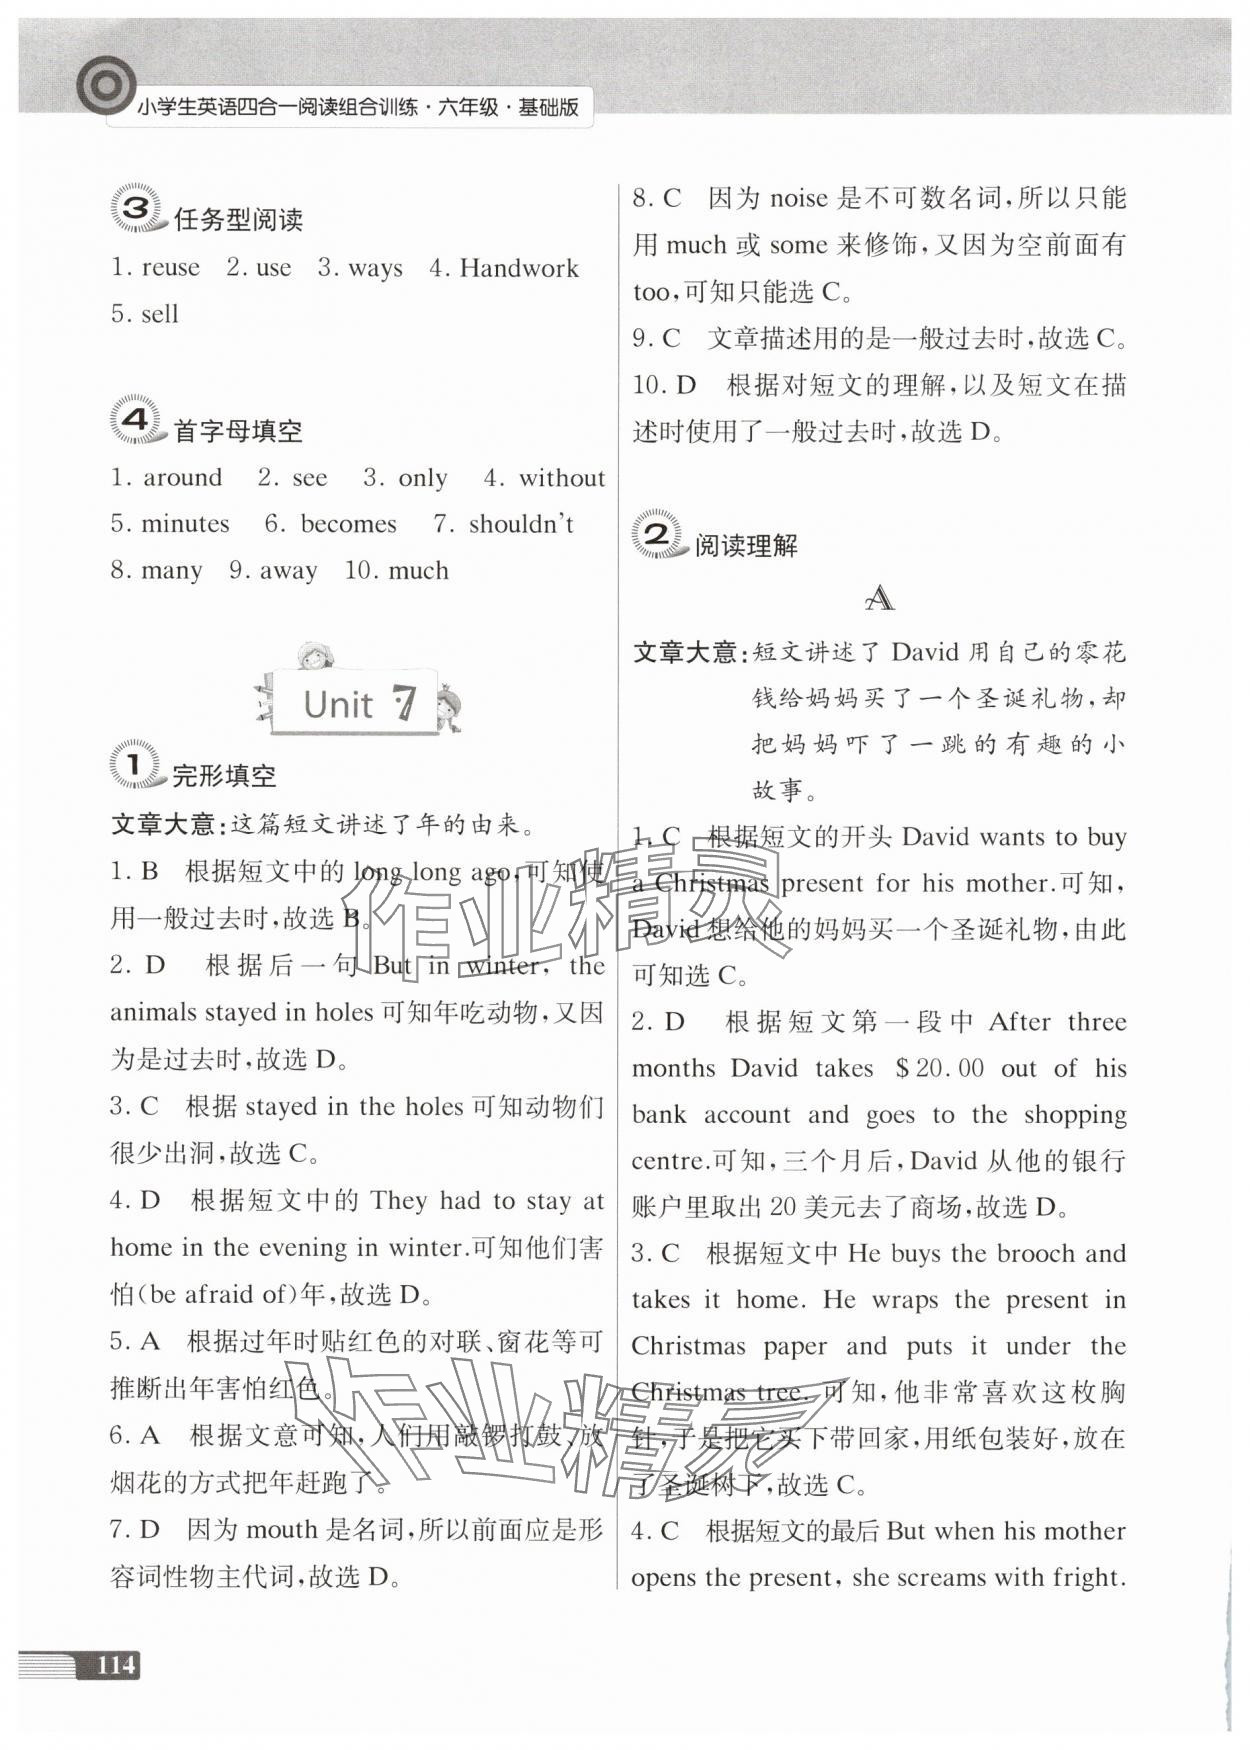 小学生英语四合一阅读组合训练·六年级·基础版
3 任务型阅读
1. reuse 2. use 3. ways 4. Handwork
5. sell
4 首字母填空
1. around 2. see 3. only 4. without
5. minutes 6. becomes 7. shouldn't
8. many 9. away 10. much
Unit 7
1 完形填空
文章大意:这篇短文讲述了年的由来。
1. B 根据短文中的 long long ago,可知使
用一般过去时,故选 B。
2. D 根据后一句 But in winter, the
animals stayed in holes 可知年吃动物,又因
为是过去时,故选 D。
3. C 根据 stayed in the holes 可知动物们
很少出洞,故选 C。
4. D 根据短文中的 They had to stay at
home in the evening in winter.可知他们害
怕(be afraid of)年,故选 D。
5. A 根据过年时贴红色的对联、窗花等可
推断出年害怕红色。
6. A 根据文意可知,人们用敲锣打鼓、放
烟花的方式把年赶跑了。
7. D 因为 mouth 是名词,所以前面应是形
容词性物主代词,故选 D。
8. C 因为 noise 是不可数名词,所以只能
用 much 或 some 来修饰,又因为空前面有
too,可知只能选 C。
9. C 文章描述用的是一般过去时,故选 C。
10. D 根据对短文的理解,以及短文在描
述时使用了一般过去时,故选 D。
2 阅读理解
A
文章大意:短文讲述了 David 用自己的零花
钱给妈妈买了一个圣诞礼物,却
把妈妈吓了一跳的有趣的小
故事。
1. C 根据短文的开头 David wants to buy
a Christmas present for his mother.可知,
David 想给他的妈妈买一个圣诞礼物,由此
可知选 C。
2. D 根据短文第一段中 After three
months David takes $20.00 out of his
bank account and goes to the shopping
centre.可知,三个月后,David 从他的银行
账户里取出 20 美元去了商场,故选 D。
3. C 根据短文中 He buys the brooch and
takes it home. He wraps the present in
Christmas paper and puts it under the
Christmas tree. 可知,他非常喜欢这枚胸
针,于是把它买下带回家,用纸包装好,放在
了圣诞树下,故选 C。
4. C 根据短文的最后 But when his mother
opens the present, she screams with fright.
作业精灵
作业精灵
114